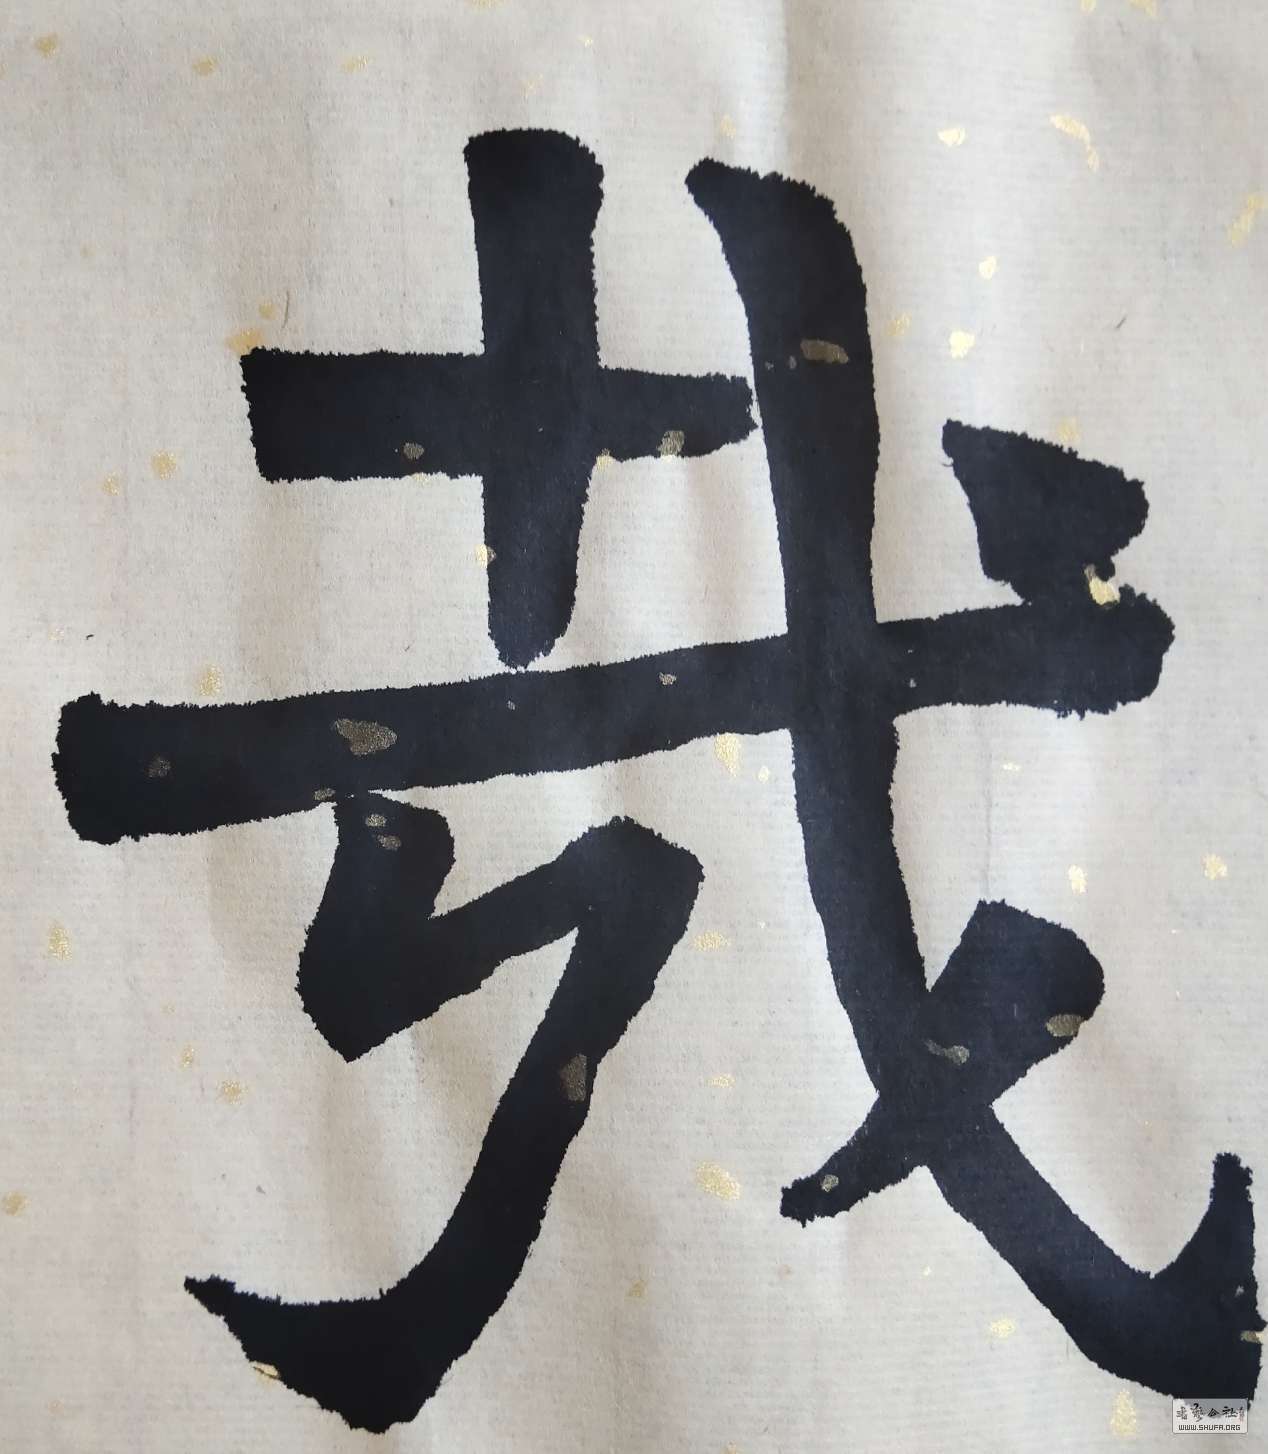 哉
書藝公社
WWW.SHUFA.ORG